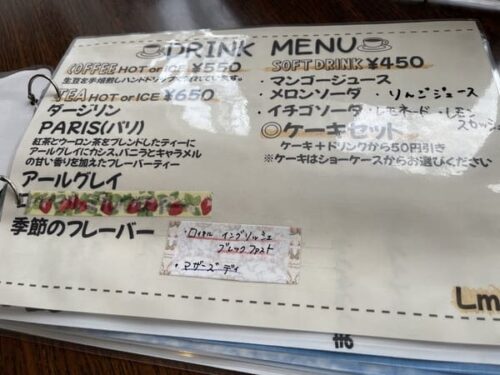 DRINK MENU
COFFEE HOT or ICE ¥550
生豆を手焙煎しハンドドリップでいれています。
TEA HOT or ICE ¥650
ダージリン
PARIS(パリ)
紅茶とウーロン茶をブレンドしたティーに
アールグレイにカシス、バニラとキャラメル
の甘い香りを加えたフレーバーティー
アールグレイ
季節のフレーバー
・ロイヤル イングリッシュ
ブレックファスト
・マザーズ デイ
SOFT DRINK ¥450
マンゴージュース
・メロンソーダ ・りんごジュース
・イチゴソーダ ・レモネード ・レモン
スカッシュ
◎ケーキセット
ケーキ+ドリンクから50円引き
※ケーキはショーケースからお選びください
Lm